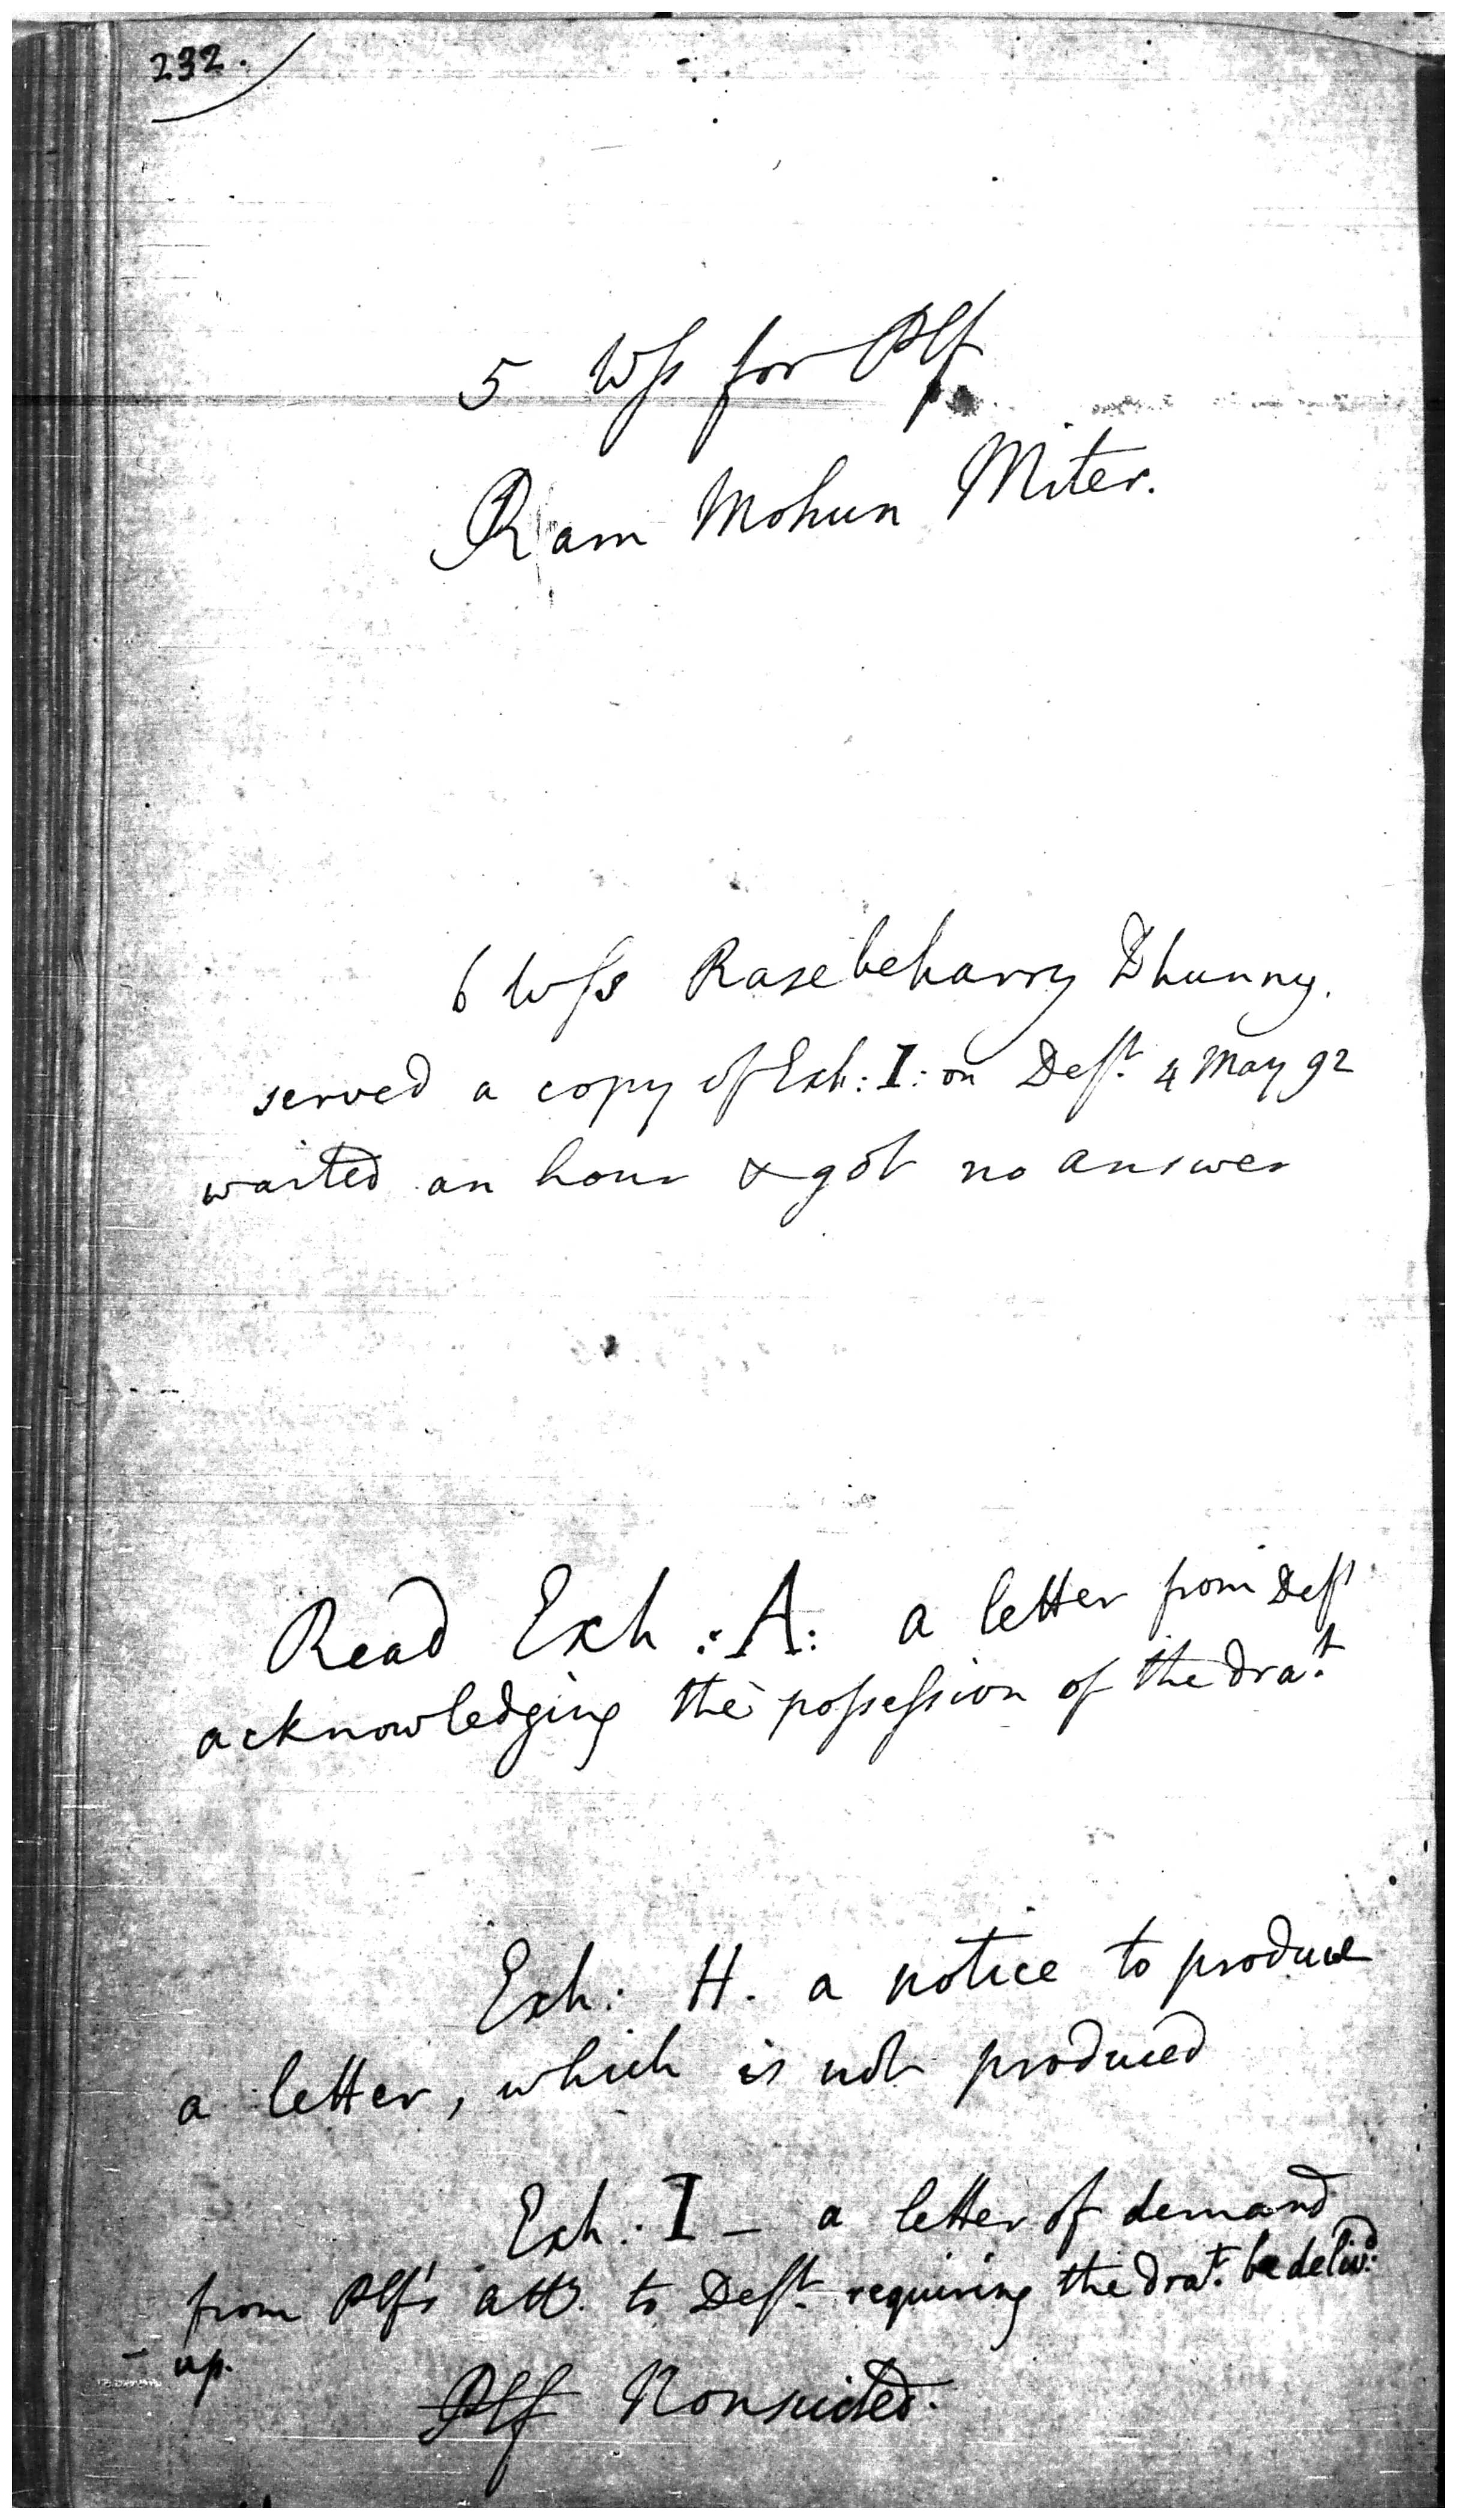 232.
5 Wſs for Plf
Ram Mohun Miter.
6 Wſs Rasebeharry Dhunny.
served a copy of Exh: I: on Deft. 4 May 92
waited an hour & got no answer
Read Exh: A: a letter from Deft
acknowledging the poſseſsion of the dra.t
Exh: H. a notice to produce
a letter, which is not produced
Exh: I – a letter of demand
from Plf's att.y to Deft. requiring the dra.t be deliv.d
up.
Plf Nonsuited.